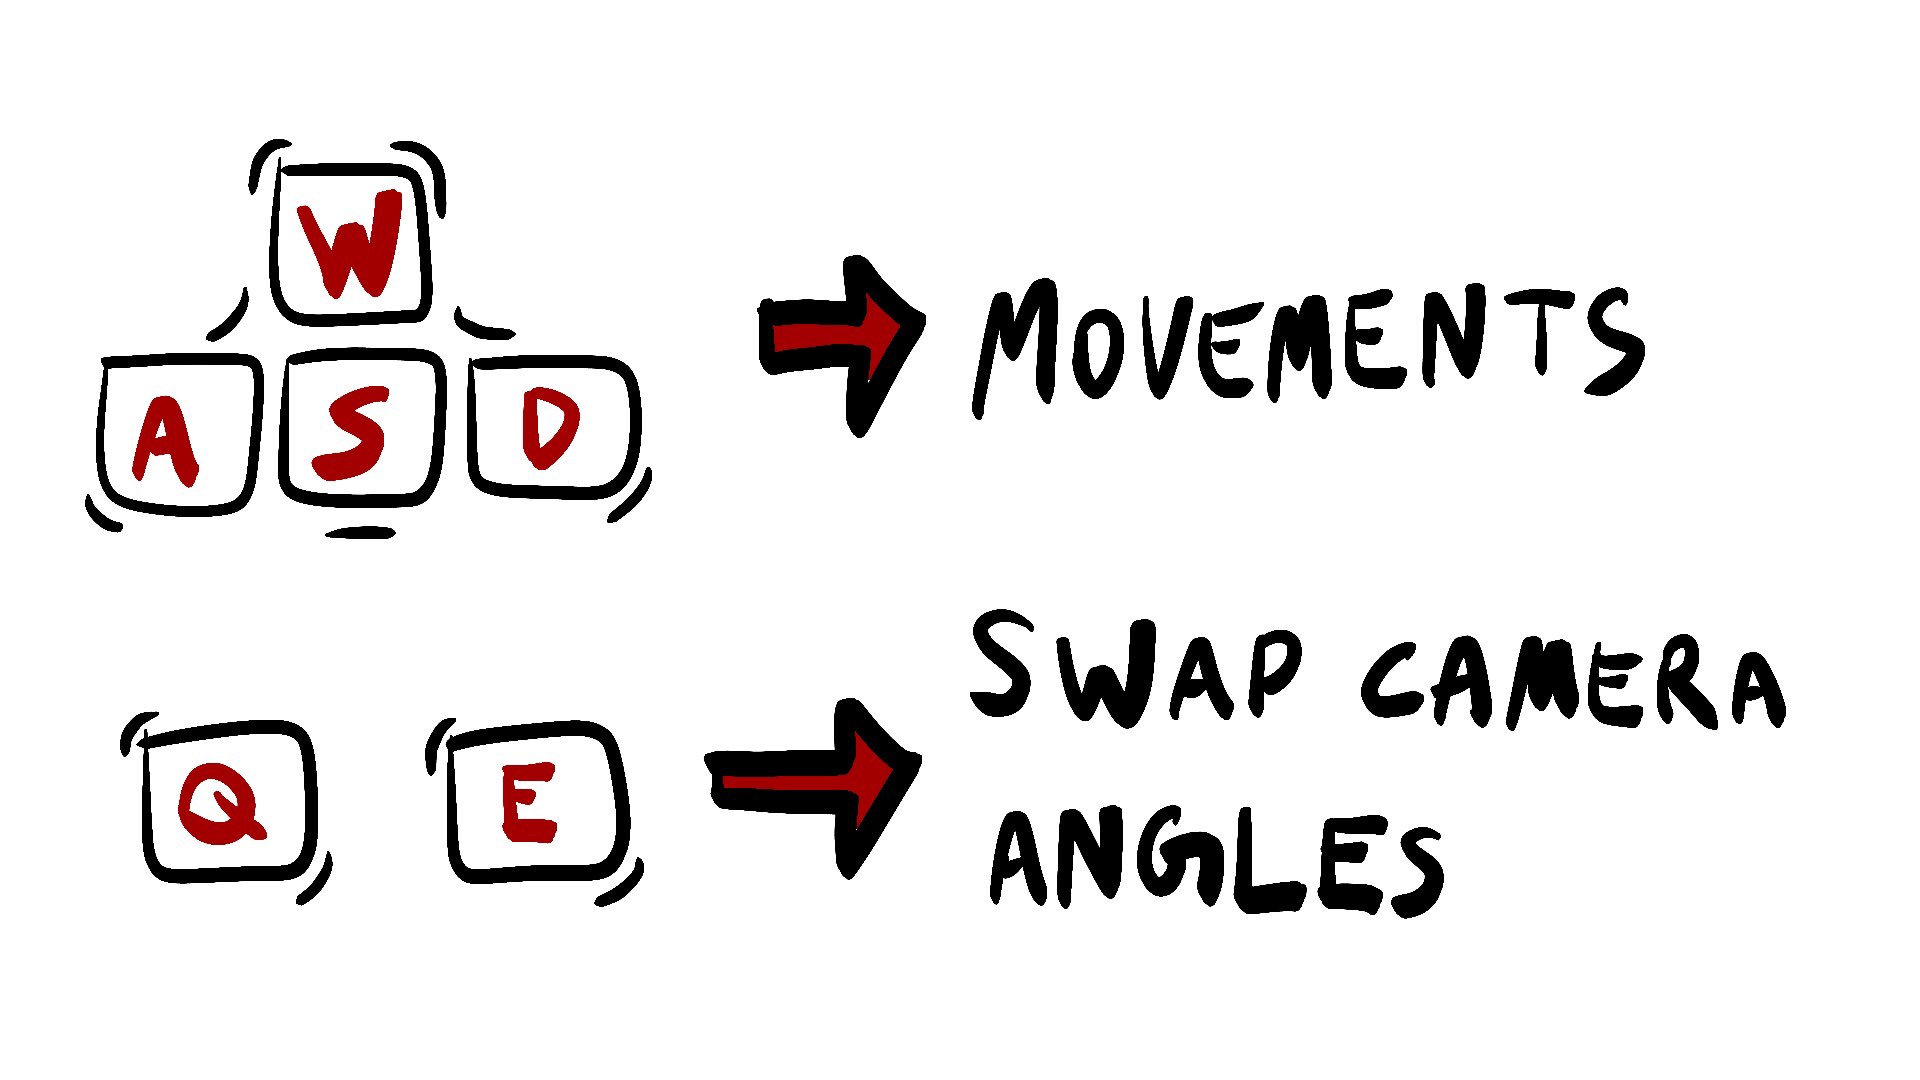 W
A S D
MOVEMENTS
Q E
SWAP CAMERA
ANGLES